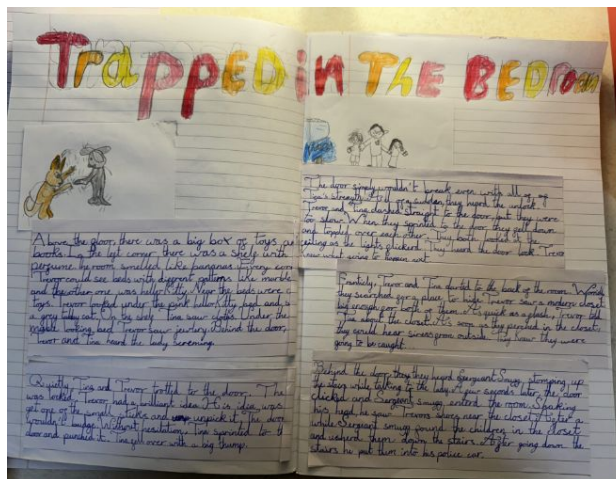 Trapped in The Bedroom
Above the floor there was a big box of toys
books. In the left corner there was a shelf with
perfume. The room smelled like bananas.
Trevor could see beds with different patterns like marble
and the other was
toys. Trevor looked under the pink bed and
a grey teddy cat. On the Tina saw cloths. Under the
looking bed Trevor saw jewlry. Behind the door,
Trevor and Tina heard the lady screming.
Quietly, Tina and Trevor to the door. The
was locked. Trevor had a brilliant idea. His idea was
get one of the small sticks and unpick it. The door
wouldn't budge. Without hesitation, Tina sprinted to the
door and punched it. Tina fell over with a big thump.
The door simply wouldn't break even with all of
Tina's strength. All of a sudden, they heard the unlock.
Trevor and Tina dashed straight to the door, but they were
too slow. When they sprinted to the door they fell down
and toppled over each other. They both looked at the
ceiling as the lights flickered. They heard the door lock. Trevor
knew what was going to happen next.
Frantically, Trevor and Tina darted to the back of the room. While
they searched for a place to hide, Trevor saw a modern closet
big enough for both of them. As quick as a flash, Trevor told
Tina about the closet. As soon as they in the closet,
they could hear sirens from outside. They knew they were
going to be caught.
Behind the door, they heard Sergeant Smugg stomping up
the stairs while talking to the lady. A few seconds later the door
clicked and Sergeant Smugg entered the room. Shaking
his head he saw Trevor's shoes near the closet. After a
while Sergeant Smugg found the children in the closet
and ushered them down the stairs. After going down the
stairs he put them into his police car.